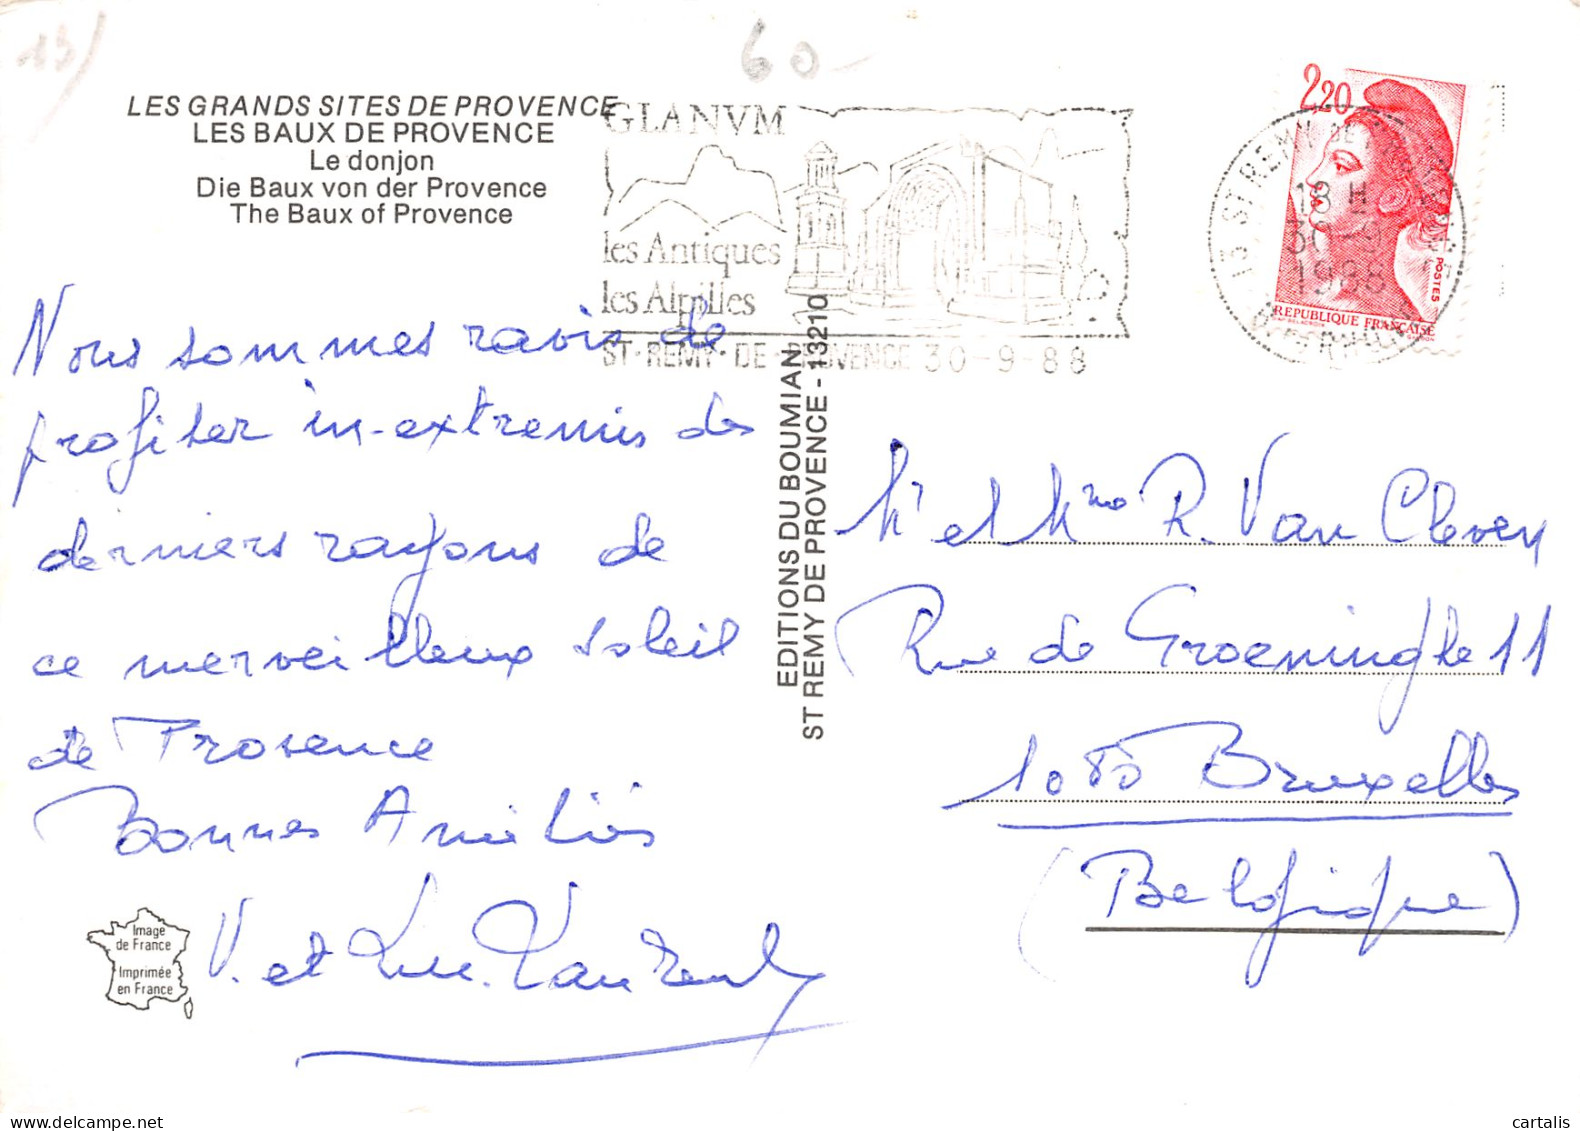 13)
60-
LES GRANDS SITES DE PROVENCE
LES BAUX DE PROVENCE
Le donjon
Die Baux von der Provence
The Baux of Provence
GLANVM
les Antiques
les Alpilles
ST-REMY-DE-PROVENCE 30-9-88
2,20
POSTES
REPUBLIQUE FRANÇAISE
13 ST REMY DE
18 H
30-9
1988
Nous sommes ravis de
profiter in-extremis des
derniers rayons de
ce merveilleux soleil
de Provence
Bonnes Amitiés
V. et Luc
EDITIONS DU BOUMIAN
ST REMY DE PROVENCE - 13210
Mr et Mme R. Van Cleven
Rue de Groeninghe 11
1080 Bruxelles
(Belgique)
Image
de France
Imprimée
en France
delcampe.net
cartalis